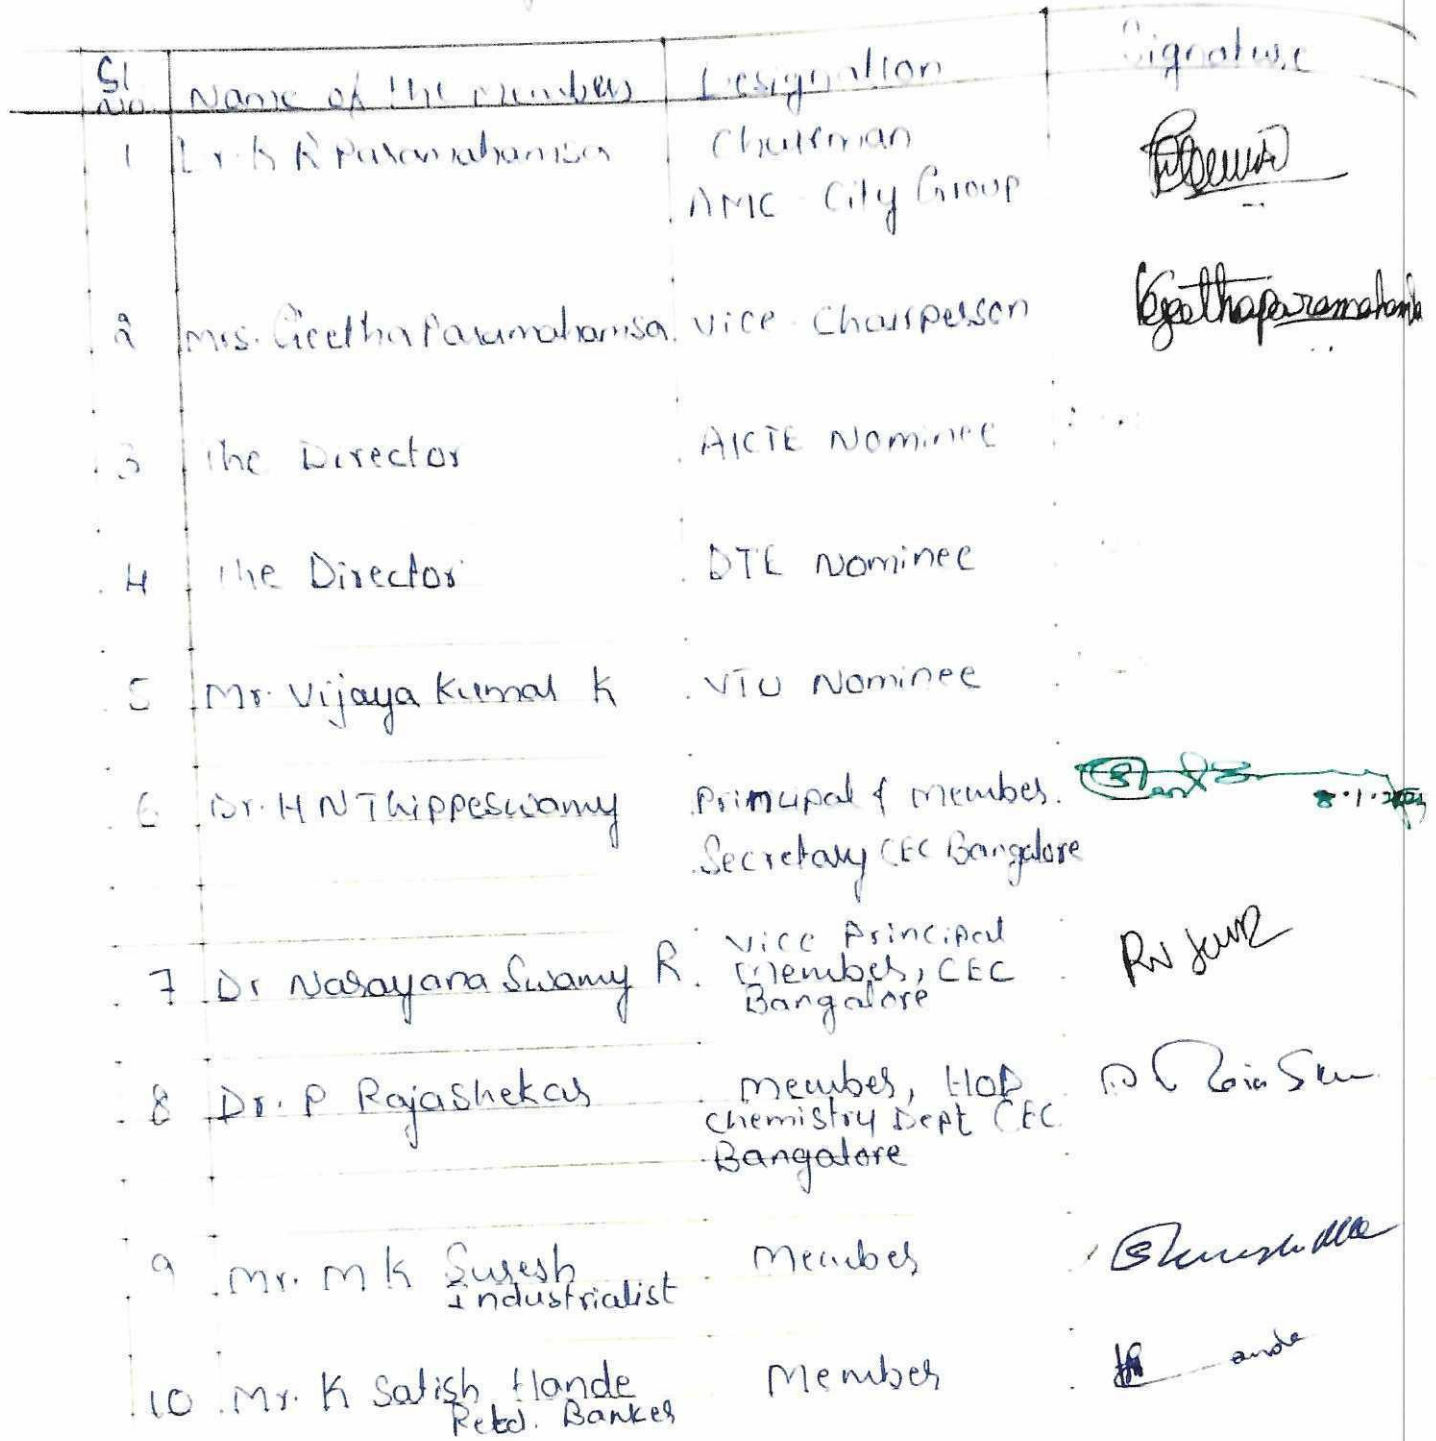 Sl No Name of the members Designation Signature
1 Dr. K R Paramahamsa Chairman
AMC City Group
2 Mrs. Geetha Paramahamsa. Vice Chairperson Geethaparamahamsa
3 The Director AICTE Nominee
4 The Director DTE Nominee
5 Mr. Vijaya Kumar K VTU Nominee
6 Dr. H N Thippeswamy Principal & Member
Secretary CEC Bangalore
Vice Principal
7 Dr Narayana Swamy R. Member, CEC
Bangalore
8 Dr. P Rajashekar Member, HOD
Chemistry Dept CEC
Bangalore
9 Mr. M K Suresh Member
Industrialist
10 Mr. K Satish Hande Member
Retd. Banker